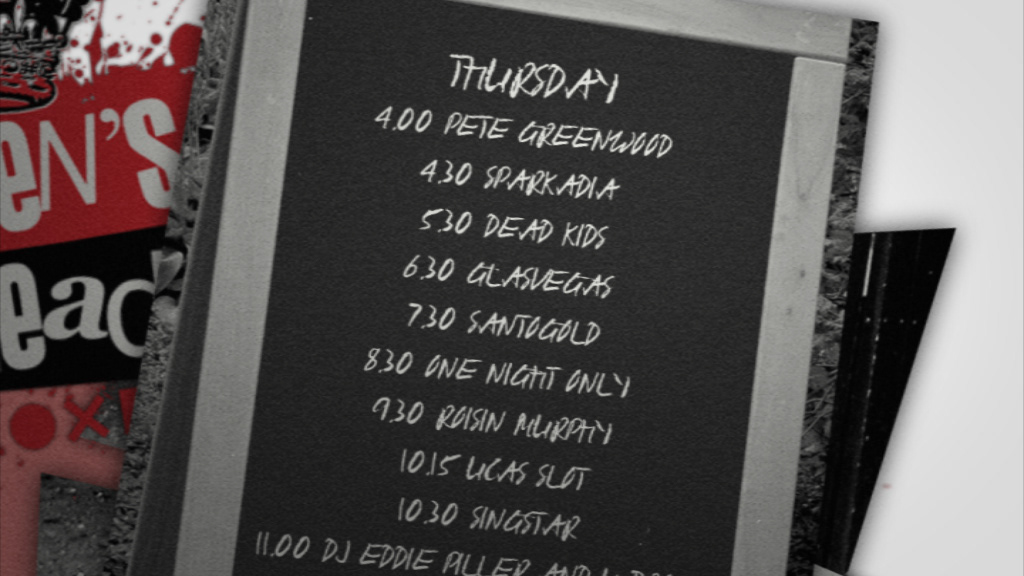 THURSDAY
4.00 PETE GREENWOOD
4.30 SPARKADIA
5.30 DEAD KIDS
6.30 GLASVEGAS
7.30 SANTOGOLD
8.30 ONE NIGHT ONLY
9.30 ROISIN MURPHY
10.15 UCAS SLOT
10.30 SINGSTAR
11.00 DJ EDDIE PILLER AND